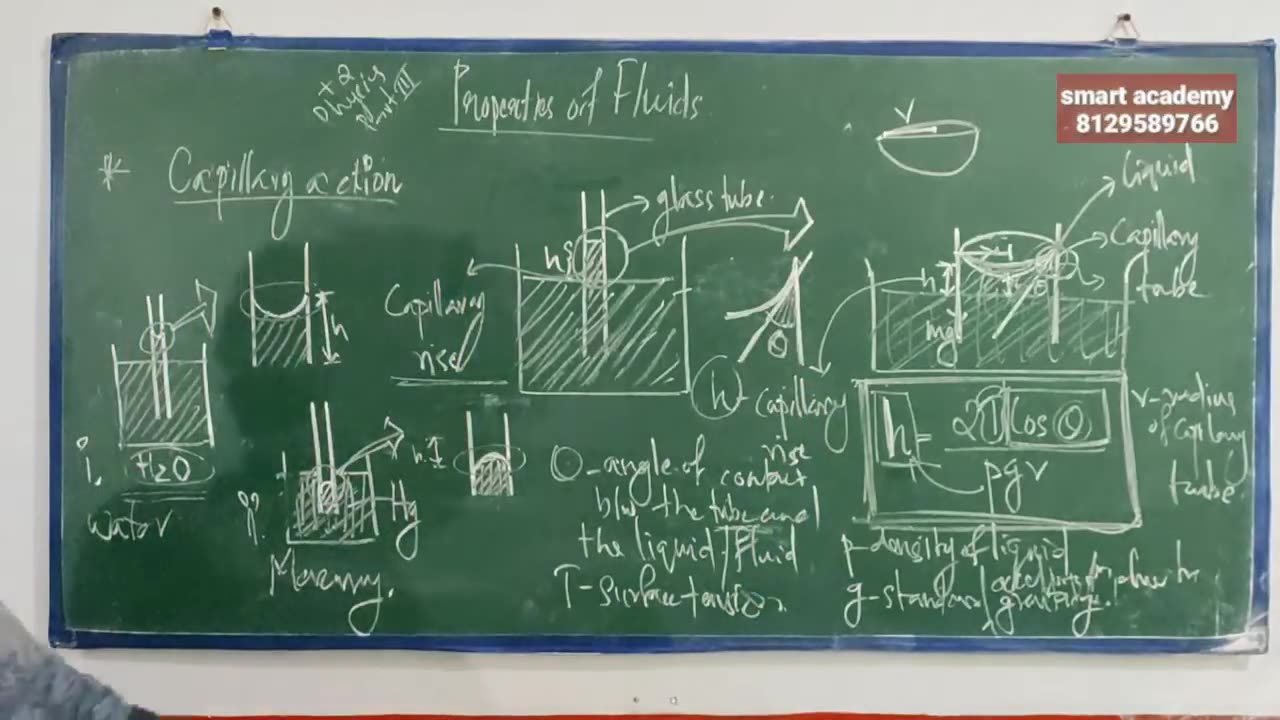 +2
Physics
Part III
Properties of Fluids
smart academy
8129589766
* Capillary action
r
glass tube.
liquid
Capillary
tube
h
h
Capillary
rise
h
mg
θ
h - capillary
rise
h = 2T cos θ
ρgr
r - radius
of capillary
tube
i. H₂O
water
ii.
Hg
Mercury.
h
θ - angle of contact
b/w the tube and
the liquid/fluid
T - Surface tension
ρ - density of liquid
g - standard
gravity.